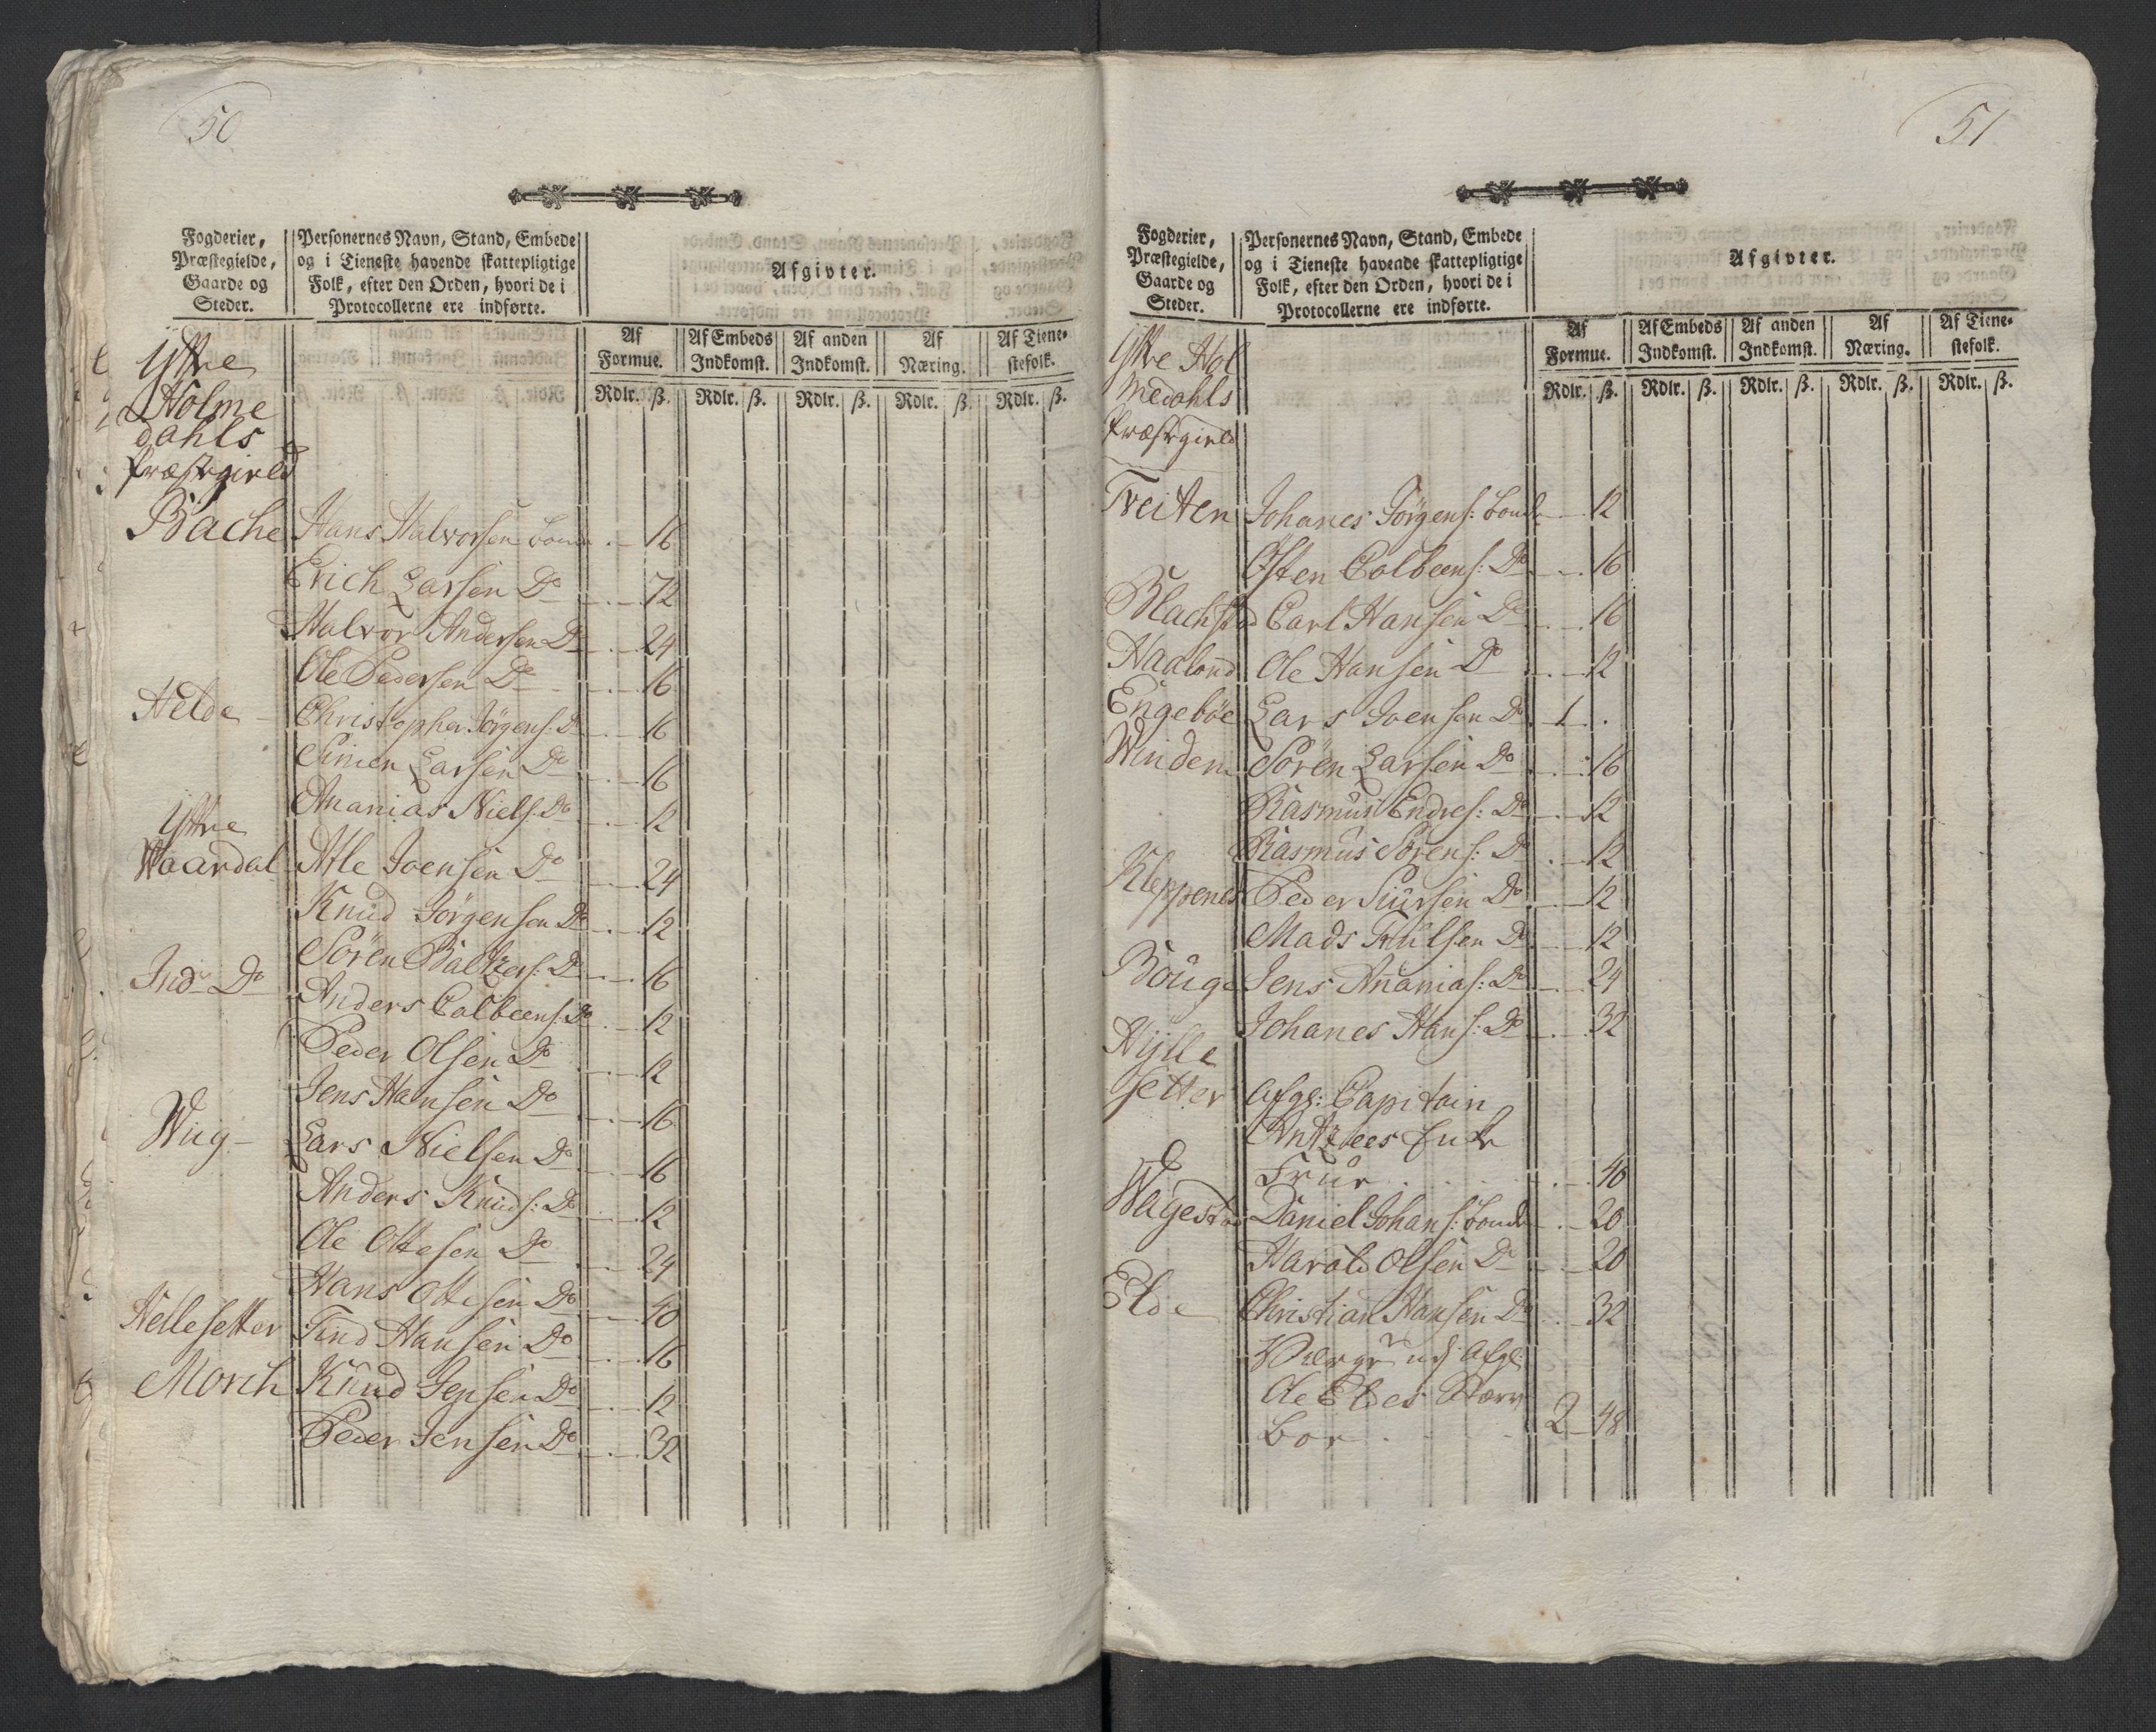 50
Fogderier,
Præstegielde,
Gaarde og
Steder.
Personernes Navn, Stand, Embede
og i Tieneste havende skattepligtige
Folk, efter den Orden, hvori de i
Protocollerne ere indførte.
Afgivter.
Af Formue. Af Embeds Indkomst. Af anden Indkomst. Af Næring. Af Tiene-stefolk.
Rdlr. ß. Rdlr. ß. Rdlr. ß. Rdlr. ß. Rdlr. ß.
Yttre
Holme
dahls
Præstegield
Bache Hans Halvorsen bonde 16
Erich Larsen Do 72
Halvor Andersen Do 24
Ole Pedersen Do 16
Helde Christopher Jörgens: Do 16
Simen Larsen Do 16
Ananias Niels: Do 12
Yttre
Waardal Atle Joensen Do 24
Knud Jörgensen Do 12
Sören Baltzers: Do 16
Ind Do Anders Colbeens: Do 12
Peder Olsen Do 12
Jens Hansen Do 16
Wiig Lars Nielsen Do 16
Anders Knuds: Do 12
Ole Ottesen Do 24
Hans Ottesen Do 40
Hellesetter Find Hansen Do 16
Morch Knud Jensen Do 12
Peder Jensen Do 32
51
Fogderier,
Præstegielde,
Gaarde og
Steder.
Personernes Navn, Stand, Embede
og i Tieneste havende skattepligtige
Folk, efter den Orden, hvori de i
Protocollerne ere indførte.
Afgivter.
Af Formue. Af Embeds Indkomst. Af anden Indkomst. Af Næring. Af Tiene-stefolk.
Rdlr. ß. Rdlr. ß. Rdlr. ß. Rdlr. ß. Rdlr. ß.
Yttre Hol
medahls
Præstegield
Tveiten Johanes Jörgens: bonde 12
Östen Colbeens: Do 16
Blachstad Carl Hansen Do 16
Haaland Ole Hansen Do 12
Engeböe Lars Joensen Do 1
Winden Sören Larsen Do 16
Rasmus Endres: Do 12
Rasmus Sörens: Do 12
Kleppenes Peder Siursen Do 12
Mads Trulsen Do 12
Bouge Jens Ananias: Do 24
Johanes Hans: Do 32
Hylle
setter afg: Capitain
Frue 40
Wagestad Daniel Johans: bonde 20
Harald Olsen Do 20
Elde Christian Hansen Do 32
afg:
Ole Eldes
boe 2 48